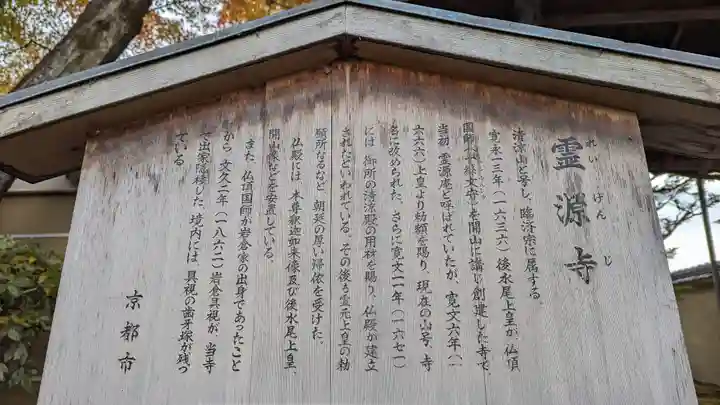 霊源寺
れいげんじ
清涼山と号し、臨済宗に属する。
寛永一三年（一六三六）後水尾上皇が、仏頂
国師（一絲文守）を開山に請じ創建した寺で、
当初、霊源庵と呼ばれていたが、寛文六年（一
六六六）上皇より勅額を賜り、現在の山号、寺
名に改められた。さらに寛文一一年（一六七一）
には、御所の清涼殿の用材を賜り、仏殿が建立
されたといわれている。その後も霊元上皇の勅
願所なるなど、朝廷の厚い帰依を受けた。
仏殿には、本尊釈迦如来像及び後水尾上皇、
開山像などを安置している。
また、仏頂国師が岩倉家の出身であったこと
から、文久二年（一八六二）岩倉具視が、当寺
で出家隠棲した。境内には、具視の歯牙塚が残っ
ている。
京都市